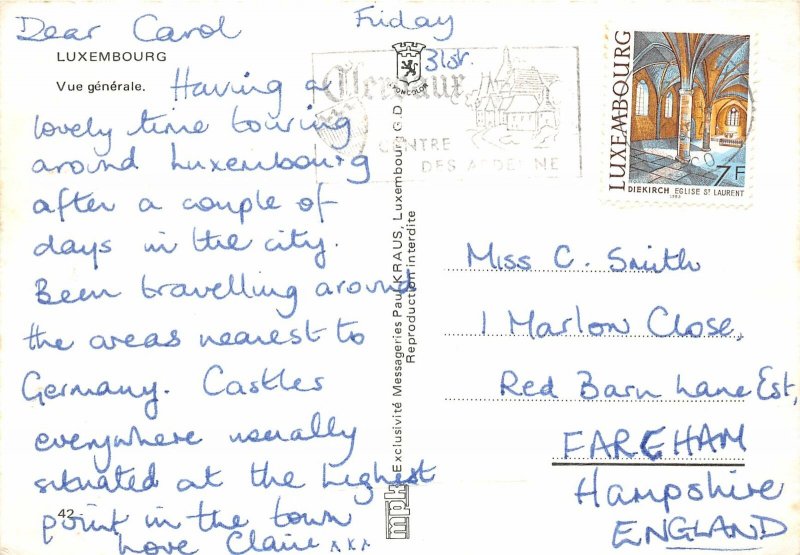 Dear Carol
Friday
31st.
LUXEMBOURG
Vue générale.
Having a
lovely time touring
around Luxembourg
after a couple of
days in the city.
Been travelling around
the areas nearest to
Germany. Castles
everywhere usually
situated at the highest
point in the town
Love Claire xxx
42
Clervaux
CENTRE
DES ARDENNE
Exclusivité Messageries Paul KRAUS, Luxembourg G.D.
Reproduction interdite
mpk
LUXEMBOURG
7F
DIEKIRCH EGLISE ST LAURENT
Miss C. Smith
1 Marlow Close,
Red Barn Lane Est,
FAREHAM
Hampshire
ENGLAND